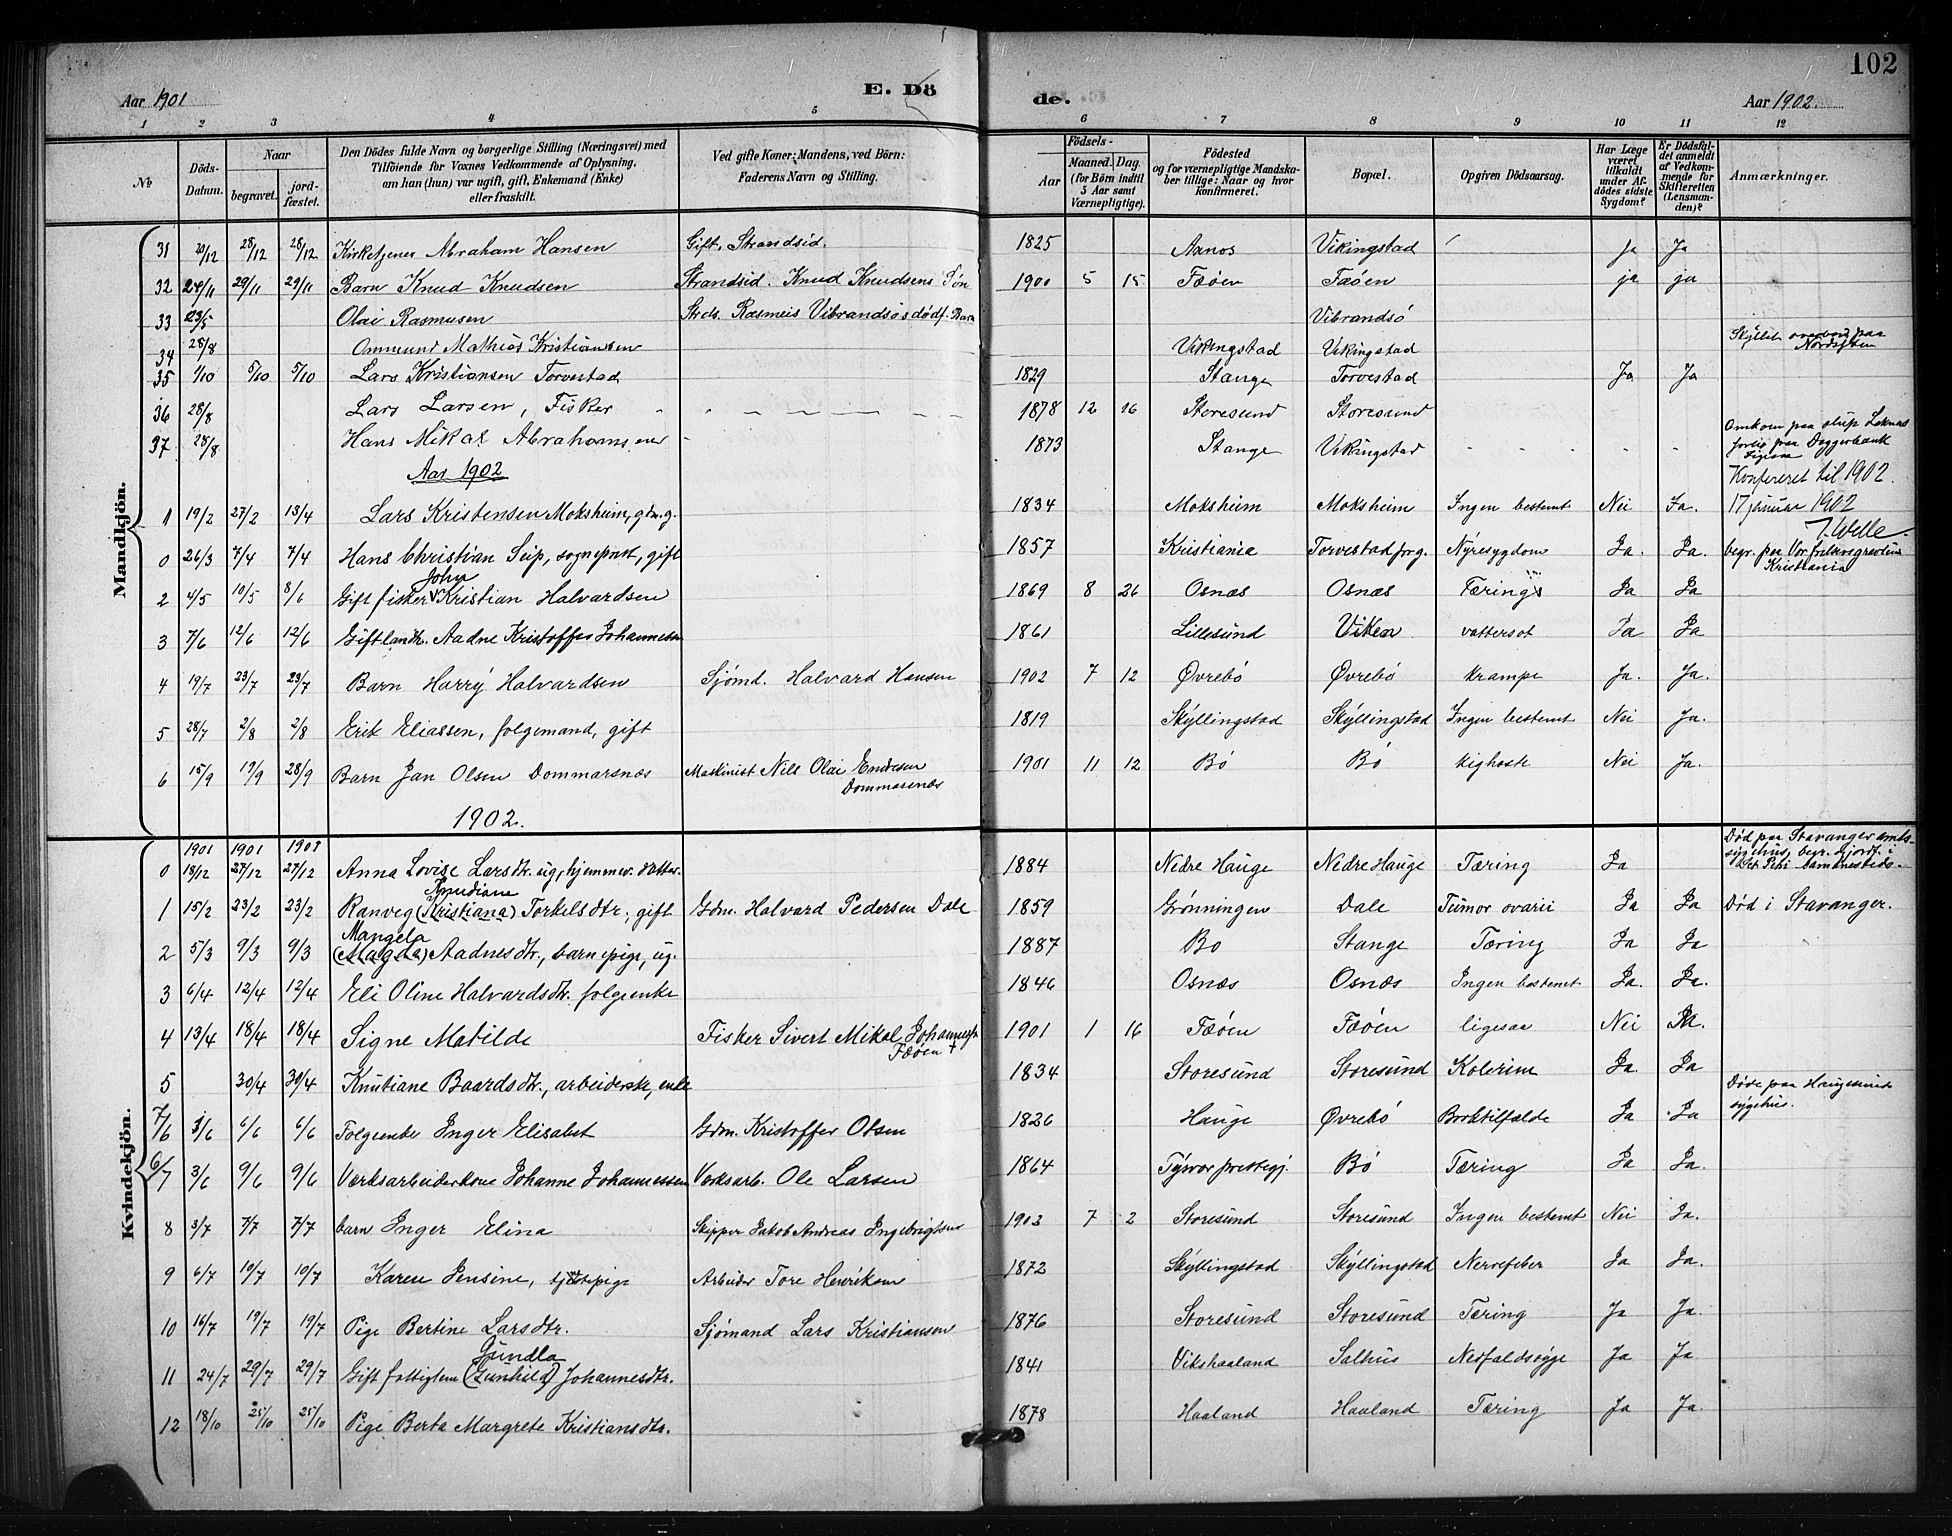 102
Aar 1901 E. Dö de. Aar 1902.
1 2 3 4 5 6 7 8 9 10 11 12
№
Döds-Datum.
Naar
begravet.
jord-fæstet.
Den Dödes fulde Navn og borgerlige Stilling (Næringsvei) med
Tilföiende for Voxnes Vedkommende af Oplysning,
om han (hun) var ugift, gift, Enkemand (Enke)
eller fraskilt.
Ved gifte Koner: Mandens, ved Börn:
Faderens Navn og Stilling.
Födsels-
Aar
Maaned. Dag.
(for Börn indtil
5 Aar samt
Værnepligtige).
Födested
og for værnepligtige Mandska-
ber tillige: Naar og hvor
konfirmeret.
Bopæl.
Opgiven Dödsaarsag.
Har Læge
været
tilkaldt
under Af-
dödes sidste
Sygdom?
Er Dödsfal-
det anmeldt
af Vedkom-
mende for
Skifteretten
(Lensman-
den)?
Anmærkninger.
Mandkjön.
31 20/12 28/12 28/12 Kirketjener Abraham Hansen Gift, Strandsid. 1825 Aanos Vikingstad Ja Ja
32 24/11 29/11 29/11 Barn Knud Knudsen Strandsid. Knud Knudsens Søn 1900 5 15 Fæøen Fæøen ja ja
33 23/5 Olai Rasmusen Strds. Rasmeis Vibrandsøs dødf. Barn Vibrandsø
34 28/8 Ommund Mathias Kristiansen Vikingstad Vikingstad Skyllet overbord paa Nordsjøen
35 1/10 5/10 5/10 Lars Kristiansen Torvestad 1829 Stange Torvestad Ja Ja
36 28/8 Lars Larsen, Fisker 1878 12 16 Storesund Storesund
37 28/8 Hans Mikal Abrahamsen 1873 Stange Vikingstad Omkom paa slup
forlig paa Doggerbank
Aar 1902
Konfereret til 1902.
1 19/2 27/2 13/4 Lars Kristensen Moksheim, gdm. g. 1834 Moksheim Moksheim Ingen bestemt Nei Ja. 17 januar 1902
0 26/3 7/4 7/4 Hans Christian Seip, sogneprest, gift 1857 Kristiania Torvestad prg. Nyresygdom Ja. Ja. begr. paa Vor frelsers gravlund Kristiania
2 4/5 10/5 8/6 Gift fisker John Kristian Halvardsen 1869 8 26 Osnæs Osnæs Tæring Ja Ja
3 7/6 12/6 12/6 Gift landh. Aadne Kristoffer Johannessen 1861 Lillesund Viken vattersot Ja Ja
4 19/7 23/7 23/7 Barn Harry Halvardsen Sjømd. Halvard Hansen 1902 7 12 Øvrebø Øvrebø krampe Ja. Ja.
5 28/7 2/8 2/8 Erik Eliassen, folgemand, gift 1819 Skyllingstad Skyllingstad Ingen bestemt Nei Ja.
6 15/9 19/9 28/9 Barn Jan Olsen Dommarsnæs Maskinist Nils Olai Endresen Dommarsnæs 1901 11 12 Bø Bø kighoste Nei Ja.
1902.
Kvindekjön.
1901 1901 1901
0 18/12 27/12 27/12 Anna Lovise Larsdtr. ug, hjemmev. datter. 1884 Nedre Hauge Nedre Hauge Tæring Ja Død paa Stavanger amts-
sygehus, begr. gjordt i
1 15/2 23/2 23/2 Ranveg (Kristiana) Knudiane Torkilsdtr., gift Gdm. Halvard Pedersen Dale 1859 Grønningen Dale Tumor ovarii Ja Ja Død i Stavanger.
2 5/3 9/3 9/3 Mangela (Magda) Aadnesdtr., barnepige, ug. 1887 Bø Stange Tæring Ja Ja
3 6/4 12/4 12/4 Eli Oline Halvardsdtr. folgeenke 1846 Osnæs Osnæs Ingen bestemt Ja. Ja.
4 13/4 18/4 18/4 Signe Matilde Fisker Sivert Mikal Johannesen Fæøen + 1901 1 16 Fæøen Fæøen ligesaa Nei Ja.
5 30/4 30/4 Knutiane Baardsdtr., arbeiderske, enke 1834 Storesund Storesund Kolerine Ja Ja Døde paa Haugesund sygehus.
7/6 3/6 6/6 6/6 Folgeenke Inger Elisabet Gdm. Kristoffer Olsen 1826 Hauge Øvrebø Broktilfælde Ja Ja
6/7 3/6 9/6 9/6 Værksarbeiderkone Johanne Johannessen Værksarb. Ole Larsen 1864 Tysvær prestegj. Bø Tæring Ja Ja.
8 3/7 7/7 7/7 barn Inger Elina Skipper Jakob Andreas Ingebrigtsen 1902 7 2 Storesund Storesund Ingen bestemt Nei Ja.
9 6/7 10/7 10/7 Karen Jensine, tjenestepige Arbeider Tore Henriksen 1872 Skyllingstad Skyllingstad Nervefeber Ja Ja.
10 16/7 19/7 19/7 Pige Bertine Larsdtr. Sjømand Lars Kristiansen 1876 Storesund Storesund Tæring Ja Ja.
11 24/7 29/7 29/7 Gift fattiglem (Gunhild) Gundla Johannesdtr. 1841 Vikshaaland Salhus Nedfaldssyge Ja Ja
12 18/10 25/10 25/10 Pige Berta Margrete Kristiansdtr. 1878 Haaland Haaland Tæring Ja Ja